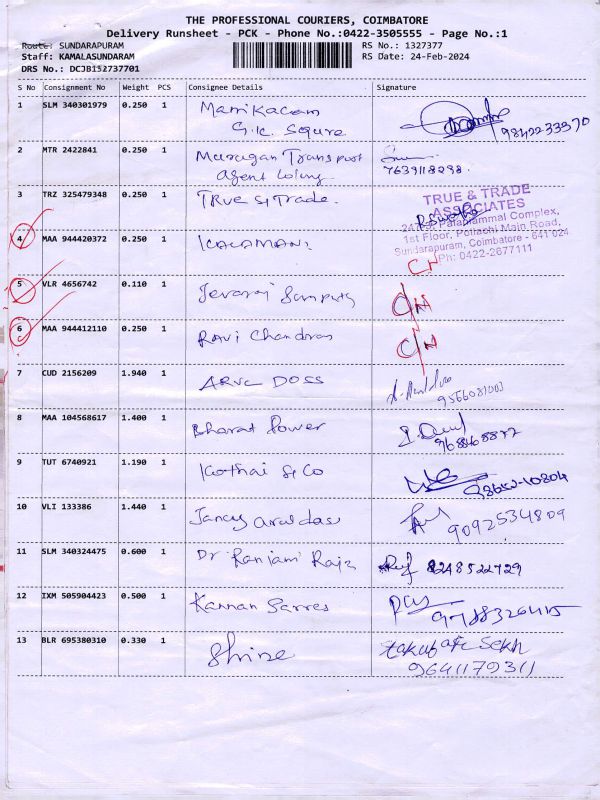 THE PROFESSIONAL COURIERS, COIMBATORE
Delivery Runsheet - PCK - Phone No.:0422-3505555 - Page No.:1
Route: SUNDARAPURAM RS No.: 1327377
Staff: KAMALASUNDARAM RS Date: 24-Feb-2024
DRS No.: DCJB152737701
S No Consignment No Weight PCS Consignee Details Signature
1 SLM 340301979 0.250 1 Manikacam
G.K. Squre 9842233370
2 MTR 2422841 0.250 1 Murugan Transport
agent colony 7639118298
3 TRZ 325479348 0.250 1 True & Trade
TRUE & TRADE
ASSOCIATES
Palaniammal Complex,
1st Floor, Pollachi Main Road,
Sundarapuram, Coimbatore - 641 024
Ph: 0422-2677111
4 MAA 944420372 0.250 1 KALAMANI
5 VLR 4656742 0.110 1 Jevaraj
6 MAA 944412110 0.250 1 Ravi Chandran
7 CUD 2156209 1.940 1 ARUL DOSS
8 MAA 104568617 1.400 1 Bharat Power
9 TUT 6740921 1.190 1 Kothai & Co
98652-10804
10 VLI 133386 1.440 1 Jancy aruldas
9092534809
11 SLM 340324475 0.600 1 Dr Ranjani Raja 8248522729
12 IXM 505904423 0.500 1 Kannan Sarres
13 BLR 695380310 0.330 1 Shine
9641170311